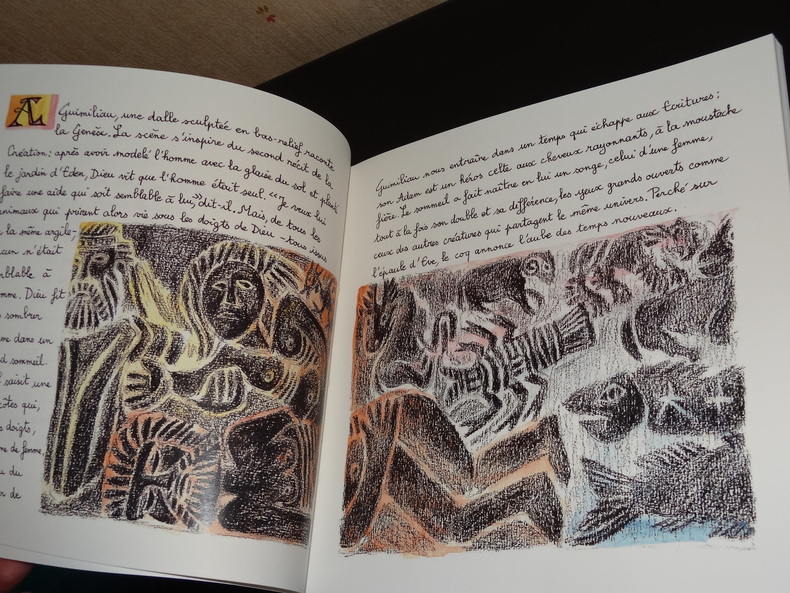 A Guimiliau, une dalle sculptée en bas-relief raconte
la Genèse. La scène s'inspire du second récit de la
Création : après avoir modelé l'homme avec la glaise du sol et planté
le jardin d'Eden, Dieu vit que l'homme était seul. "Je veux lui
faire une aide qui soit semblable à lui," dit-il. Mais, de tous les
animaux qui prirent alors vie sous les doigts de Dieu - tous issus
la même argile-
n'était
mblable à
mme. Dieu fit
sombrer
me dans un
d sommeil.
saisit une
côtes qui,
s doigts,
me de femme.
du
de
Guimiliau nous entraîne dans un temps qui échappe aux Ecritures :
son Adam est un héros celte aux cheveux rayonnants, à la moustache
fière. Le sommeil a fait naître en lui un songe, celui d'une femme,
tout à la fois son double et sa différence, les yeux grands ouverts comme
ceux des autres créatures qui partagent le même univers. Perché sur
l'épaule d'Eve, le coq annonce l'aube des temps nouveaux.